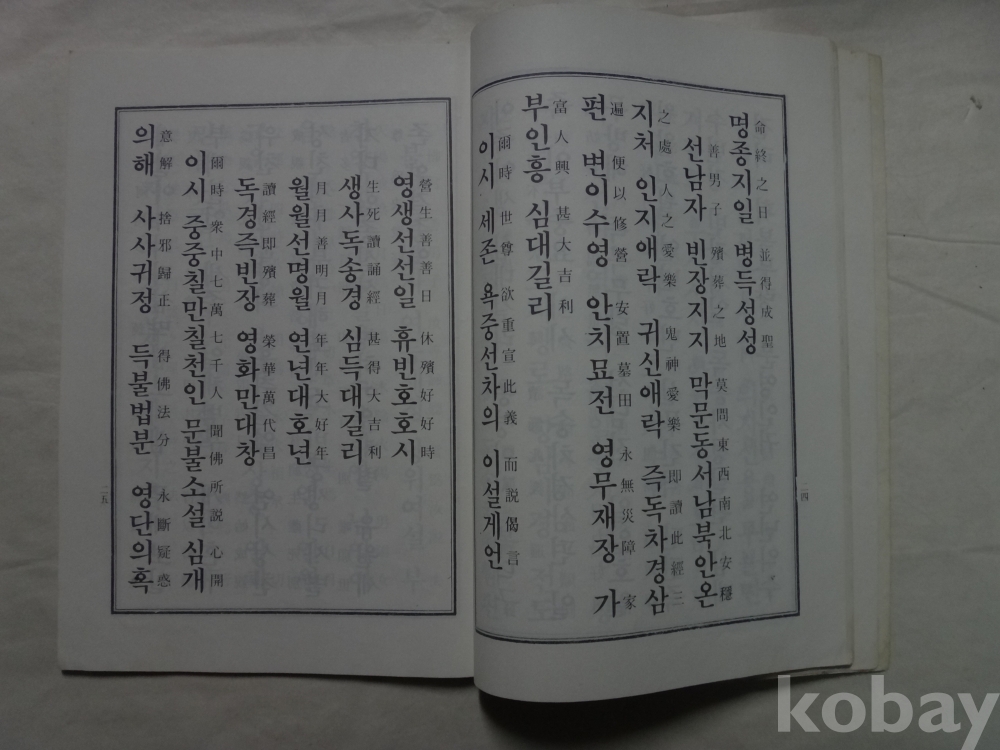 명종지일 병득성성
命終之日 並得成聖
선남자 빈장지지 막문동서남북안온
善男子 殯葬之地 莫問東西南北安穩
지처 인지애락 귀신애락 즉독차경삼
之處 人之愛樂 鬼神愛樂 即讀此經三
편 변이수영 안치묘전 영무재장 가
遍 便以修營 安置墓田 永無災障 家
부인흥 심대길리
富人興 甚大吉利
이시 세존 욕중선차의 이설게언
爾時 世尊 欲重宣此義 而説偈言
二四
영생선선일 휴빈호호시
營生善善日 休殯好好時
생사독송경 심득대길리
生死讀誦經 甚得大吉利
월월선명월 연년대호년
月月善明月 年年大好年
독경즉빈장 영화만대창
讀經即殯葬 榮華萬代昌
이시 중중칠만칠천인 문불소설 심개
爾時 衆中七萬七千人 聞佛所説 心開
의해 사사귀정 득불법분 영단의혹
意解 捨邪歸正 得佛法分 永斷疑惑
二五
kobay